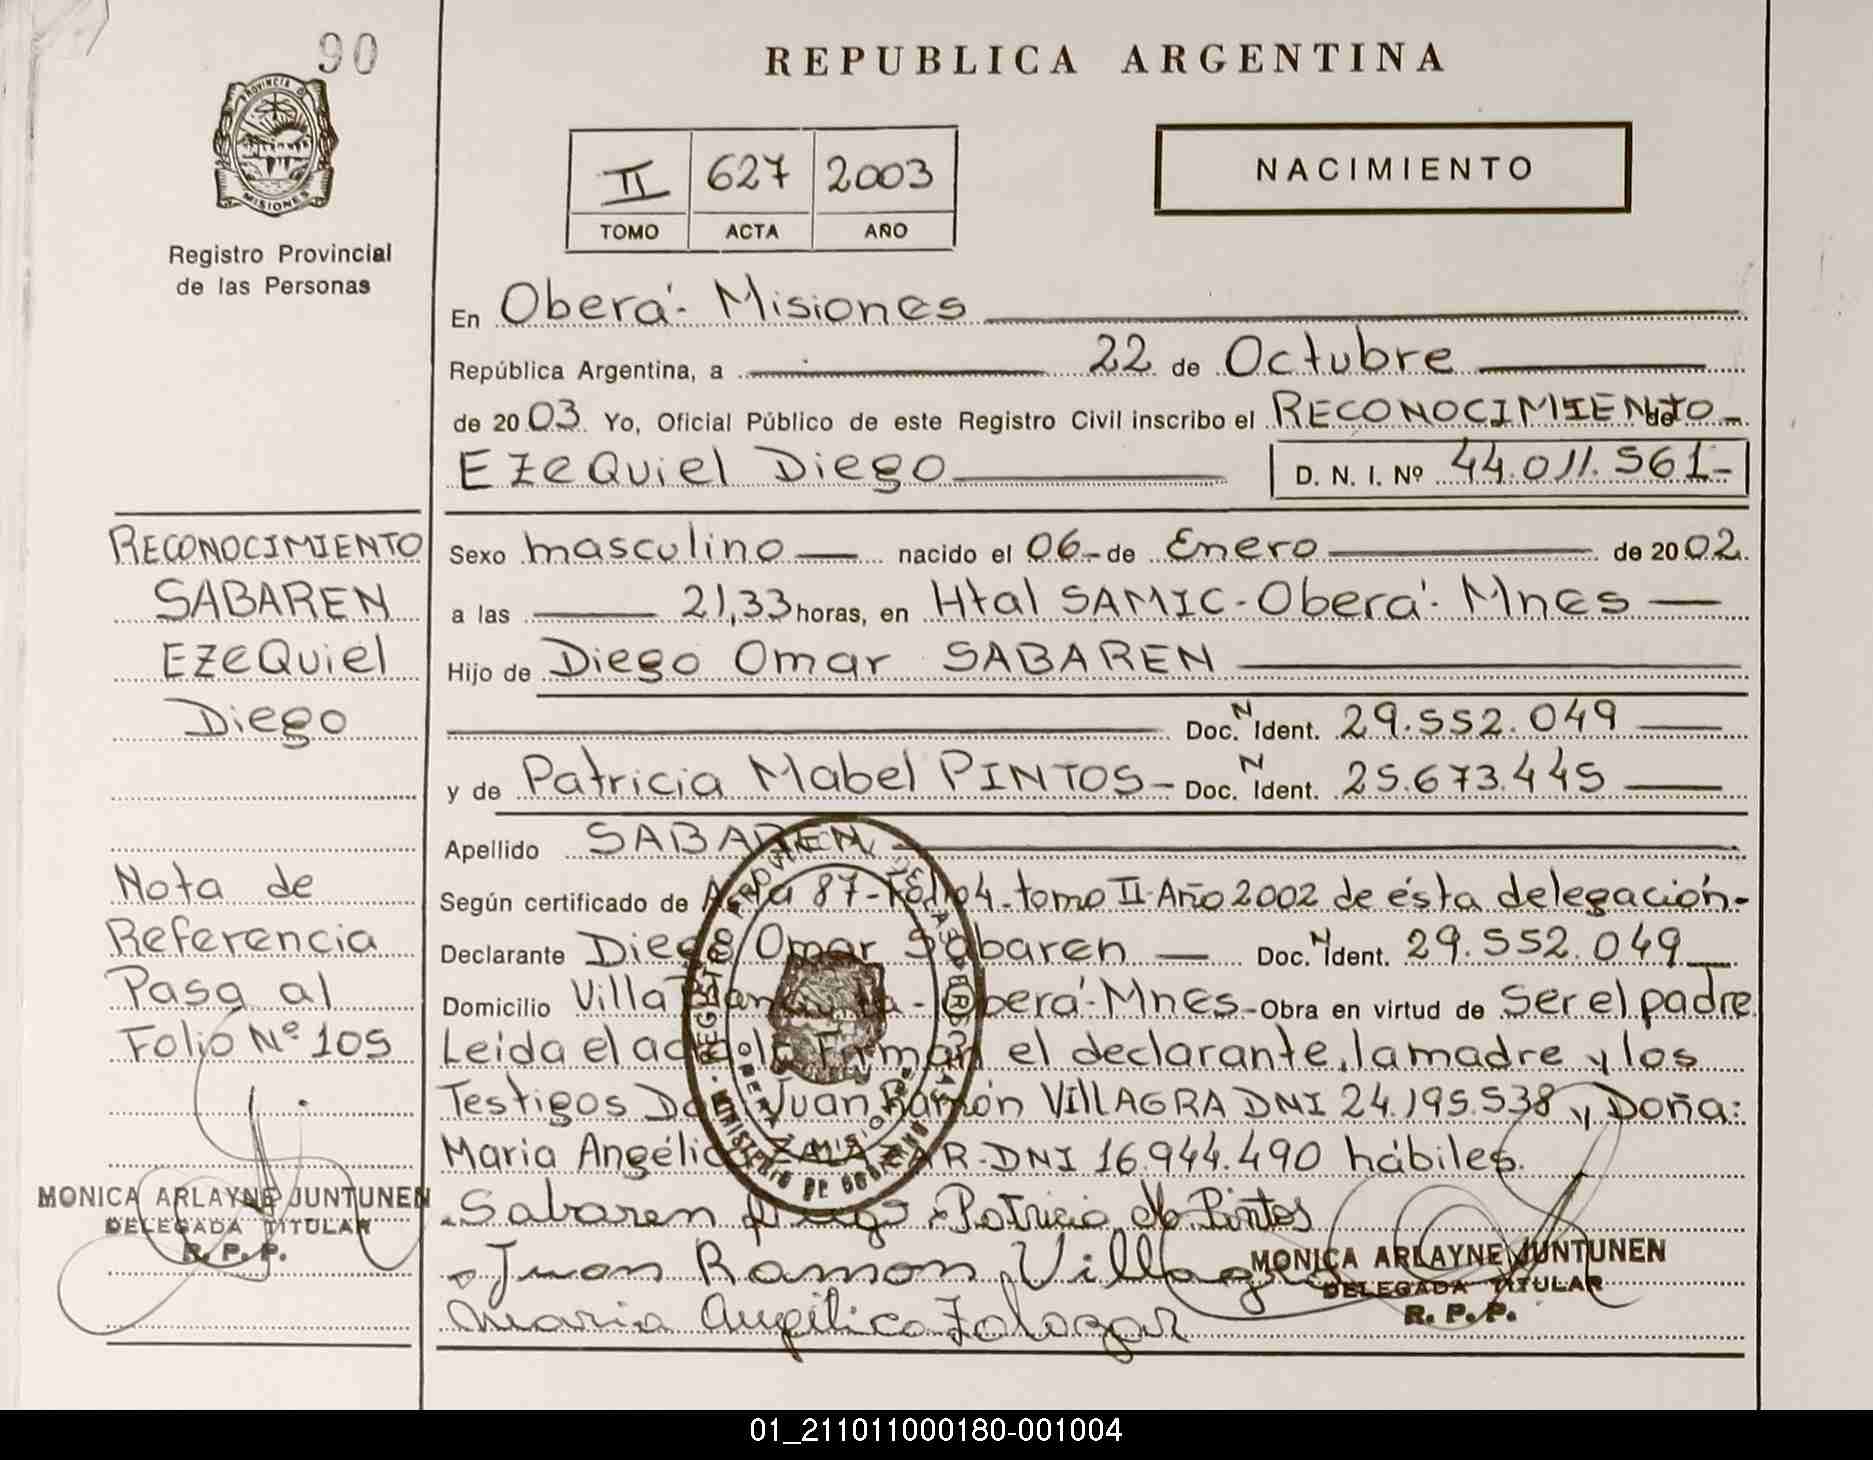 90
REPUBLICA ARGENTINA
PROVINCIA D
MISIONES
Registro Provincial
de las Personas
II 627 2003
TOMO ACTA AÑO
NACIMIENTO
En Oberá - Misiones
República Argentina, a 22 de Octubre
de 2003 Yo, Oficial Público de este Registro Civil inscribo el RECONOCIMIENTO de
EZEQuiel Diego D. N. I. Nº 44.011.561-
Sexo masculino nacido el 06 - de Enero de 2002.
a las 21,33 horas, en Htal SAMIC - Oberá - Mnes
Hijo de Diego Omar SABAREN
Doc. N Ident. 29.552.049
y de Patricia Mabel PINTOS - Doc. N Ident. 25.673.445
Apellido SABAREN
Según certificado de Acta 87 - Folio 4 - tomo II - Año 2002 de ésta delegación -
Declarante Diego Omar Sabaren Doc. N Ident. 29.552.049
Domicilio Villa - Oberá - Mnes - Obra en virtud de Ser el padre
Leida el acta la Firman el declarante, la madre y los
Testigos Don Juan Ramón VillAGRA DNI 24.195.538 y Doña:
Maria Angélica ZALAZAR - DNI 16.944.490 hábiles.
Sabaren Diego Patricia M. Pintos
Juan Ramon Villagra
Maria Angélica Zalazar
MONICA ARLAYNE JUNTUNEN
DELEGADA TITULAR
R. P. P.
RECONOCIMIENTO
SABAREN
EZEQuiel
Diego
Nota de
Referencia
Pasa al
Folio Nº 105
MONICA ARLAYNE JUNTUNEN
DELEGADA TITULAR
R. P. P.
REGISTRO PROVINCIAL DE LAS PERSONAS
MINISTERIO DE GOBIERNO
OBERA MISIONES
01_211011000180-001004